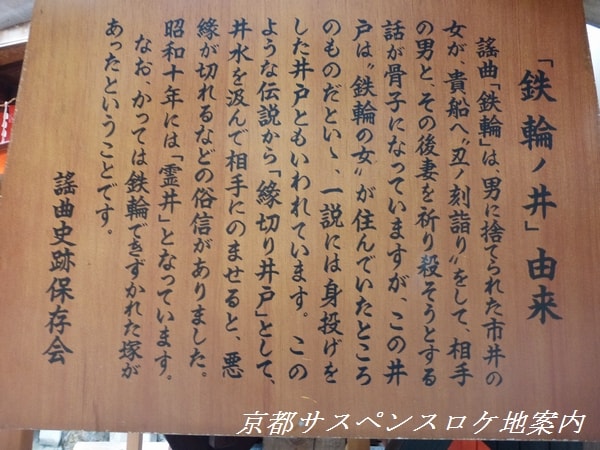 「鉄輪ノ井」由来
謡曲「鉄輪」は、男に捨てられた市井の
女が、貴船へ〝丑ノ刻詣り〟をして、相手
の男と、その後妻を祈り殺そうとする
話が骨子になっていますが、この井
戸は〝鉄輪の女〟が住んでいたところ
のものだといゝ、一説には身投げを
した井戸ともいわれています。この
ような伝説から「縁切り井戸」として、
井水を汲んで相手にのませると、悪
縁が切れるなどの俗信がありました。
昭和十年には「霊井」となっています。
なお、かっては鉄輪できずかれた塚が
あったということです。
謡曲史跡保存会
京都サスペンスロケ地案内